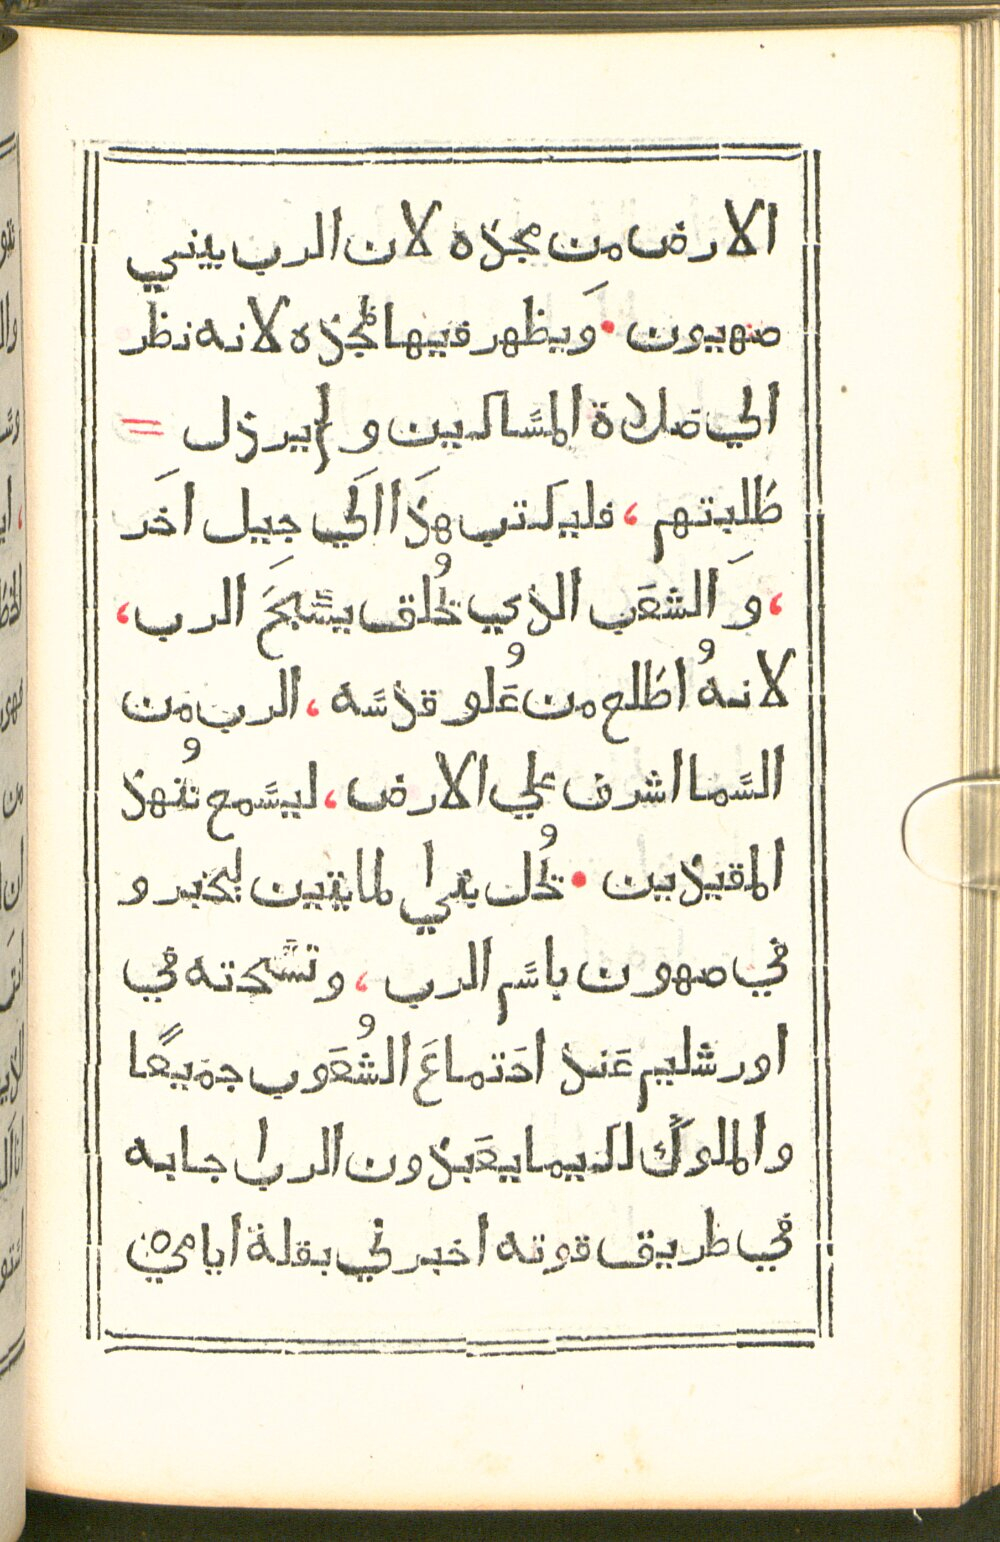 الارض من مجده لان الرب يبني
صهيون • وَيظهر فيها مجده لانه نظر
الي صلاة المساكين و لم يرذل =
طلبتهم ، فليكتب هذَا الَي جيل اخَر
، وَ الشعَب الذي يُخلق يسَبحَ الرب ،
لانهُ اطلع من عُلو قدسه ، الرب من
السما اشرف علي الارض ، ليسمع تُنهد
المقيدين • يُخل بني المايتين ليخبر و
في صهون باسم الرب ، و تسبحته في
اورشليم عَند احَتماعَ الشُعَوب جمَيعًا
والملوك لكيما يعَبدون الرب اجابه
في طريق قوته اخبرني بقلة ايامي